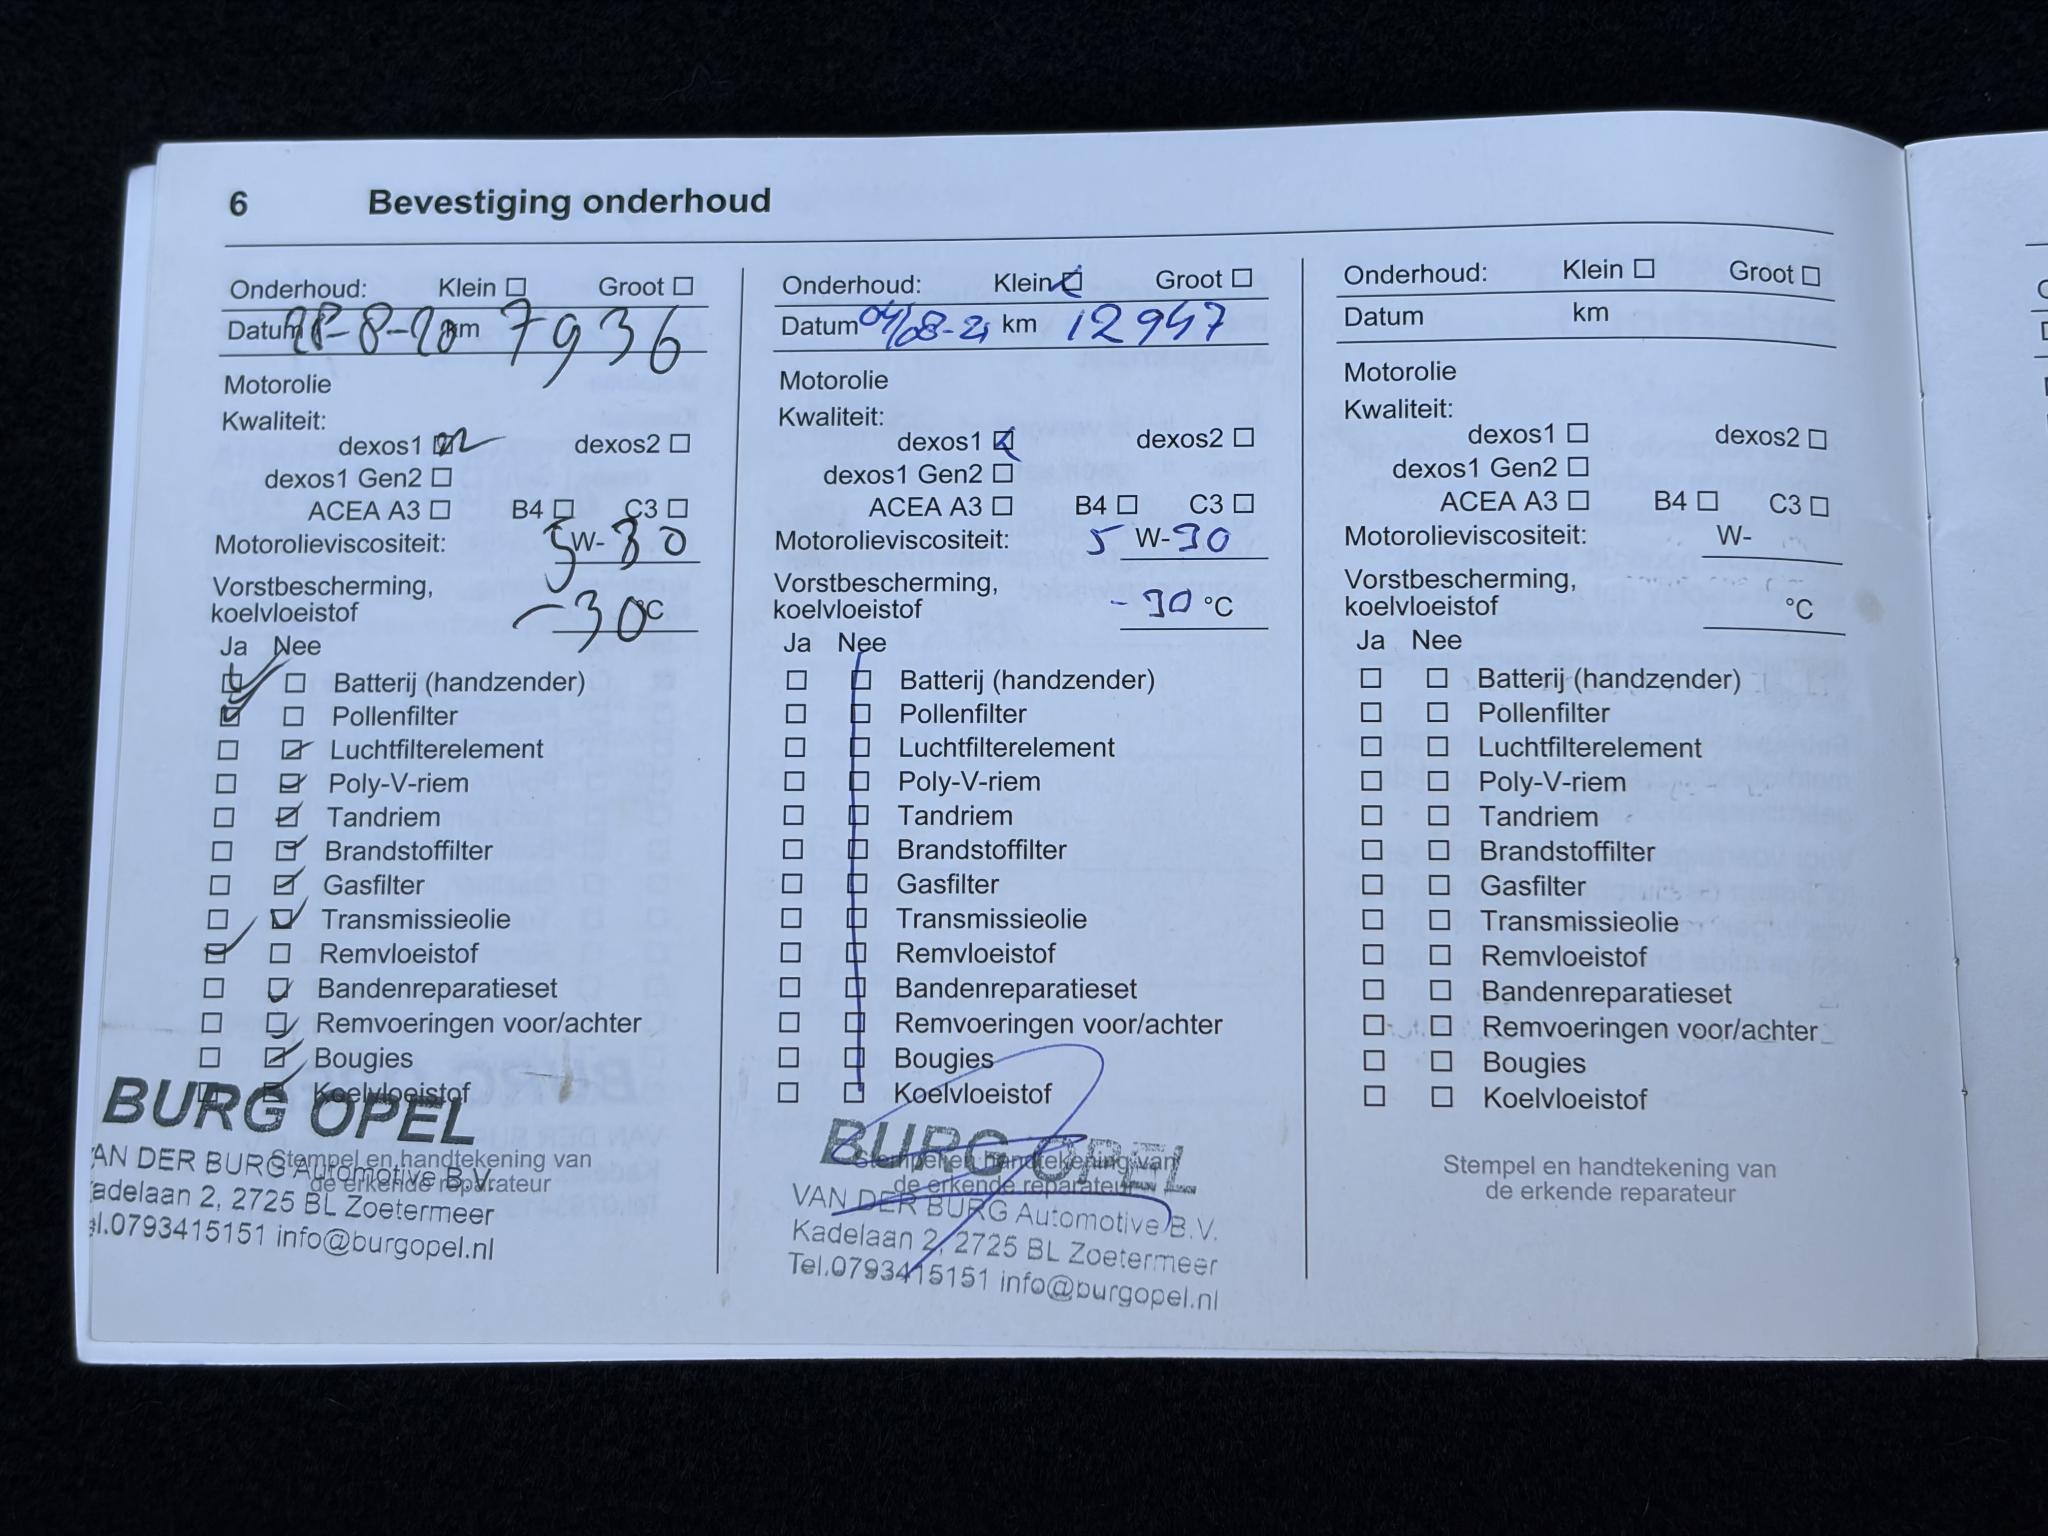 6 Bevestiging onderhoud
Onderhoud: Klein Groot
Datum 28-8-20 km 7936
Motorolie
Kwaliteit:
dexos1 dexos2
dexos1 Gen2
ACEA A3 B4 C3
Motorolieviscositeit: 5 W-30
Vorstbescherming,
koelvloeistof -30 °C
Ja Nee
Batterij (handzender)
Pollenfilter
Luchtfilterelement
Poly-V-riem
Tandriem
Brandstoffilter
Gasfilter
Transmissieolie
Remvloeistof
Bandenreparatieset
Remvoeringen voor/achter
Bougies
Koelvloeistof
BURG OPEL
Stempel en handtekening van
de erkende reparateur
AN DER BURG Automotive B.V.
adelaan 2, 2725 BL Zoetermeer
el.0793415151 info@burgopel.nl
Onderhoud: Klein Groot
Datum 04/08-21 km 12947
Motorolie
Kwaliteit:
dexos1 dexos2
dexos1 Gen2
ACEA A3 B4 C3
Motorolieviscositeit: 5 W-30
Vorstbescherming,
koelvloeistof -30 °C
Ja Nee
Batterij (handzender)
Pollenfilter
Luchtfilterelement
Poly-V-riem
Tandriem
Brandstoffilter
Gasfilter
Transmissieolie
Remvloeistof
Bandenreparatieset
Remvoeringen voor/achter
Bougies
Koelvloeistof
BURG OPEL
Stempel en handtekening van
de erkende reparateur
VAN DER BURG Automotive B.V.
Kadelaan 2, 2725 BL Zoetermeer
Tel.0793415151 info@burgopel.nl
Onderhoud: Klein Groot
Datum km
Motorolie
Kwaliteit:
dexos1 dexos2
dexos1 Gen2
ACEA A3 B4 C3
Motorolieviscositeit: W-
Vorstbescherming,
koelvloeistof °C
Ja Nee
Batterij (handzender)
Pollenfilter
Luchtfilterelement
Poly-V-riem
Tandriem
Brandstoffilter
Gasfilter
Transmissieolie
Remvloeistof
Bandenreparatieset
Remvoeringen voor/achter
Bougies
Koelvloeistof
Stempel en handtekening van
de erkende reparateur